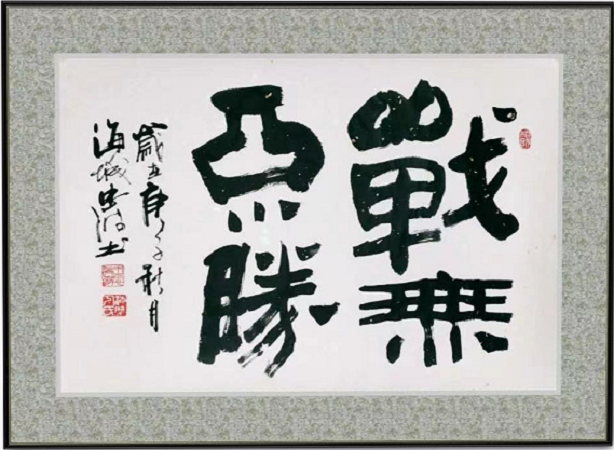 戰無
不勝
歲在庚子秋月
海城